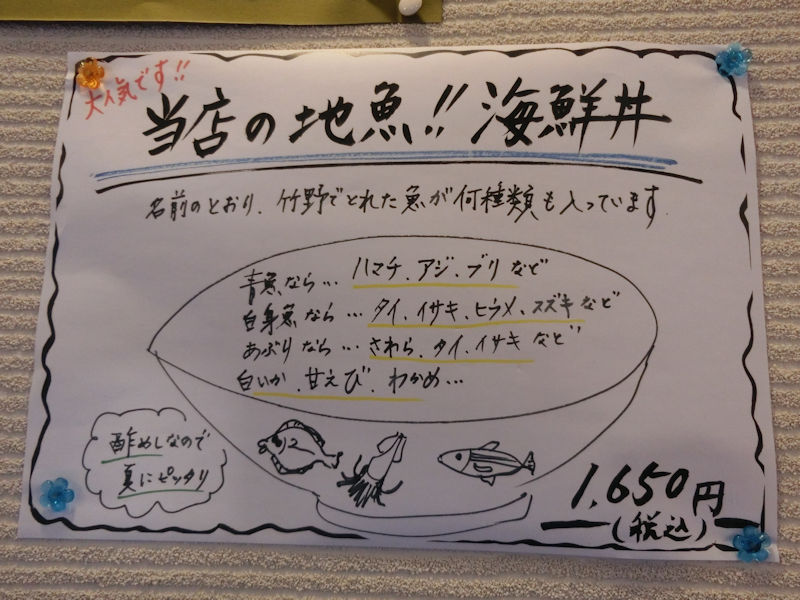 大人気です!!
当店の地魚!! 海鮮丼
名前のとおり、竹野でとれた魚が何種類も入っています。
青魚なら… ハマチ、アジ、ブリなど
白身魚なら… タイ、イサキ、ヒラメ、スズキなど
あぶりなら… さわら、タイ、イサキなど
白いか、甘えび、わかめ…
酢めしなので
夏にピッタリ
1,650円
(税込)